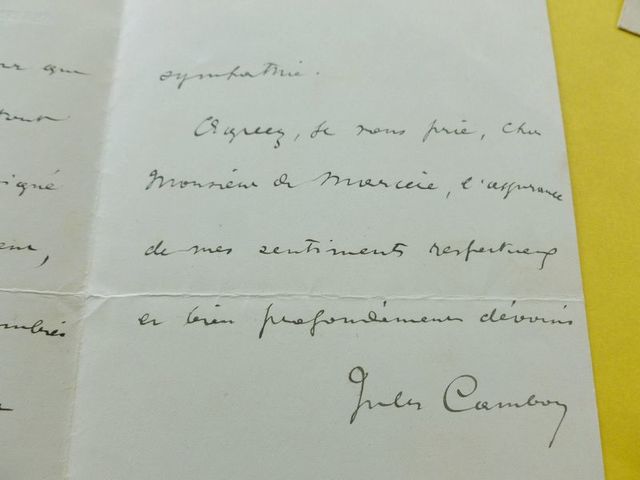 sympathie.
Agréez, je vous prie, cher
Monsieur de Marcère, l'assurance
de mes sentiments respectueux
et bien profondément dévoués
Jules Cambon
que
signé